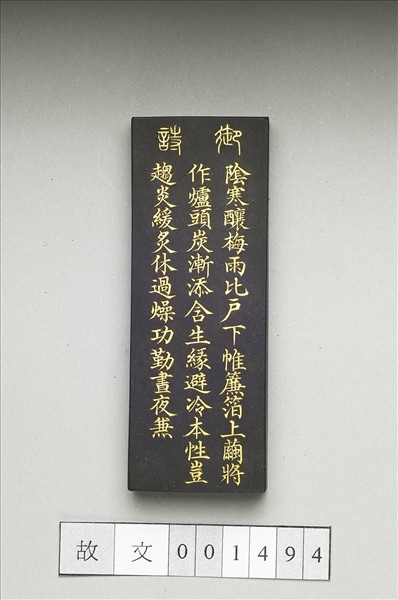 御詩
陰寒釀梅雨比戶下帷簾箔上繭將
作爐頭炭漸添含生緣避冷本性豈
趨炎緩炙休過燥功勤晝夜兼
故文001494